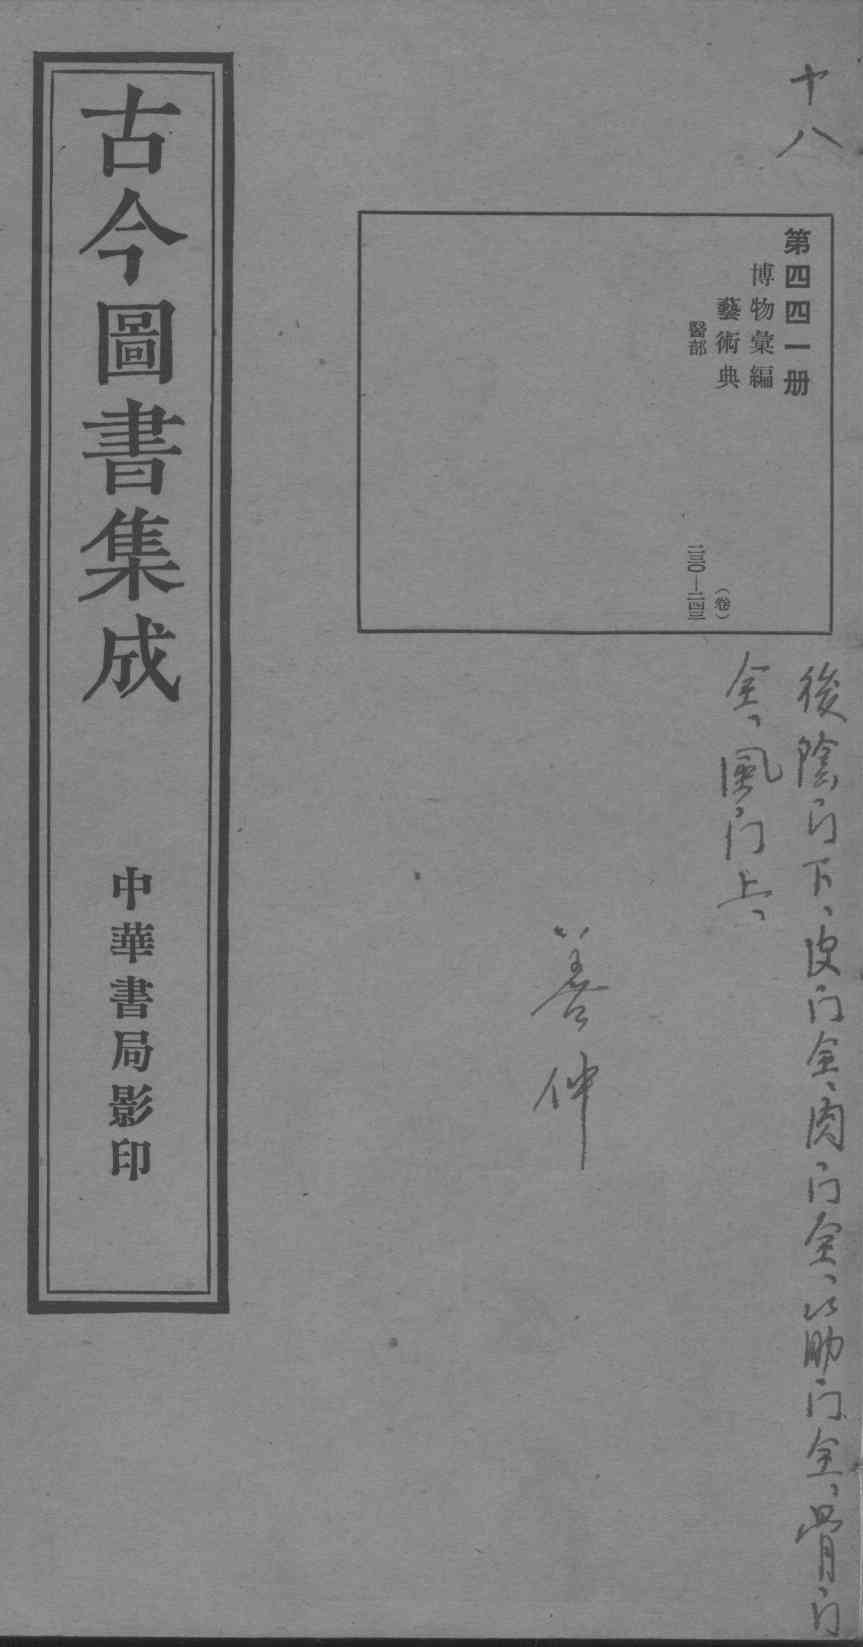 十八
第四四一册
博物彙編
藝術典
醫部
(卷)
二三〇—二四三
後陰门下、皮门全、肉门全、筋门全、骨门
全、風门上、
善仲
古今圖書集成
中華書局影印